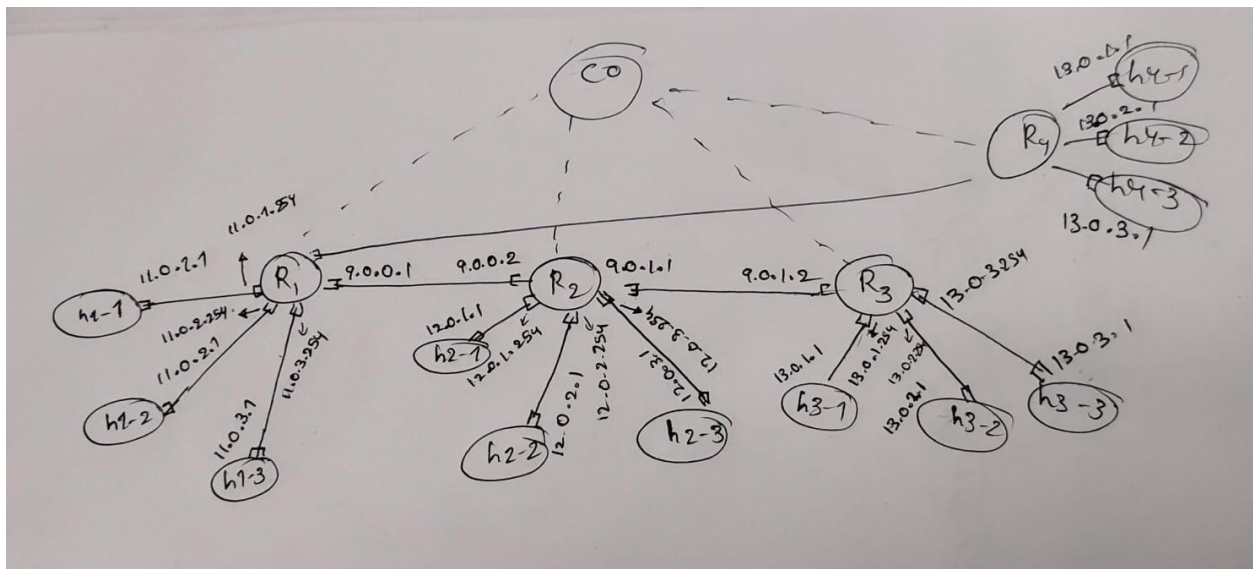 C0
13.0.1.1
h4-1
13.0.2.1
R4
h4-2
h4-3
13.0.3.1
11.0.1.254
11.0.1.1
R1
9.0.0.1
9.0.0.2
R2
9.0.1.1
9.0.1.2
R3
13.0.3.254
h1-1
11.0.2.254
11.0.2.1
h1-2
11.0.3.254
11.0.3.1
h1-3
12.0.1.1
h2-1
12.0.1.254
12.0.2.1
12.0.2.254
h2-2
12.0.3.254
12.0.3.1
h2-3
13.0.1.1
h3-1
13.0.1.254
13.0.2.1
h3-2
13.0.3.1
h3-3